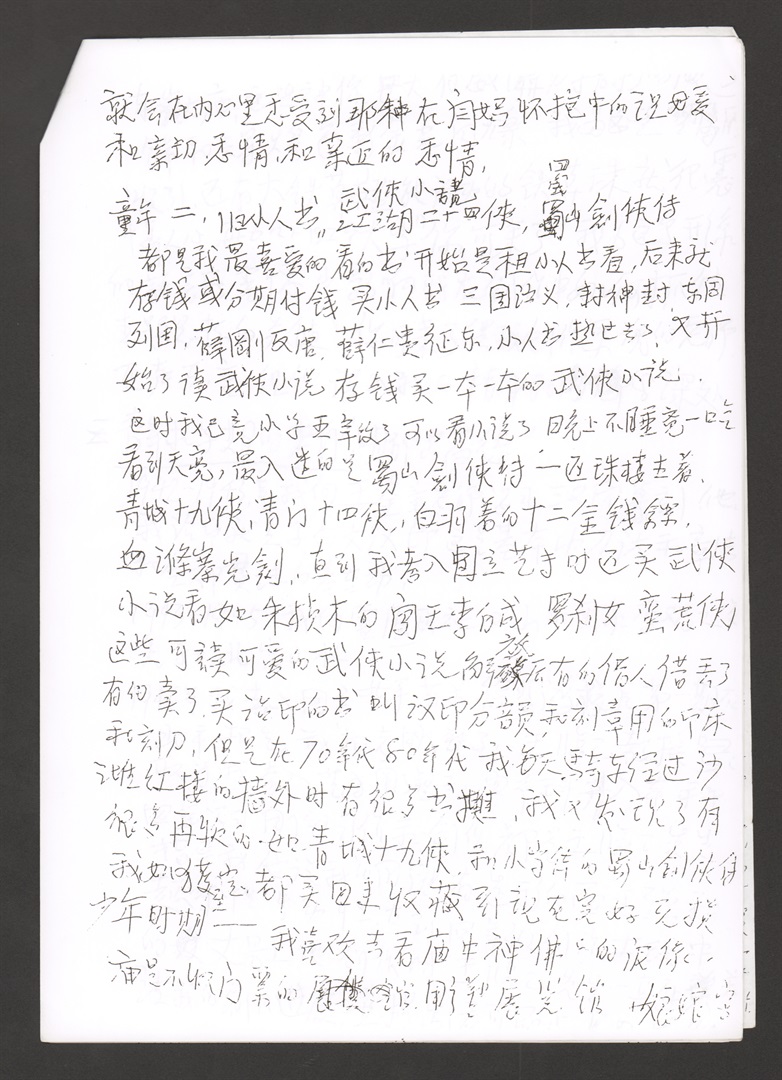 就会在内心里感受到那种在闫妈怀抱中的说母爱
和亲切感情,和亲近的感情,
童年二,旧小人书,武侠小说 江湖二十四侠,蜀山剑侠传
都是我最喜爱的看的书开始是租小人书看,后来就
存钱或分期付钱买小人书 三国演义,封神封,东周
列国,薛剛反唐,薛仁贵征东,小人书热过去了,又开
始了读武侠小说 存钱买一本一本的武侠小说.
这时我已竟小学五年级了可以看小说了 晚上不睡竟一口气
看到天亮,最入迷的是蜀山劍侠传 还珠楼主著、
青城十九侠,青门十四侠,白羽著的十二金钱镖,
血滌寒光劍,直到我考入国立艺专时还买武侠
小说看如朱桢木的闯王李自成 罗刹女 蛮荒侠
这些可读可爱的武侠小说解放后有的借人借丢了
有的卖了,买治印的书叫汉印分韻,和刻章用的印床
和刻刀,但是在70年代80年代我每天骑车经过沙
滩红楼的墙外时有很多书摊,我又发现了有
很多再版的.如青城十九侠,和小字传的蜀山剑侠传
我如获至宝都买回来收藏到现在完好无损
少年时期二——
我喜欢去看庙中神佛的泥像.
庙是不收门票的 雕塑展览馆 娘娘宫